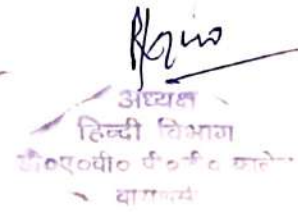 अध्यक्ष
हिन्दी विभाग
डी०ए०वी० पी०जी० कालेज
वाराणसी